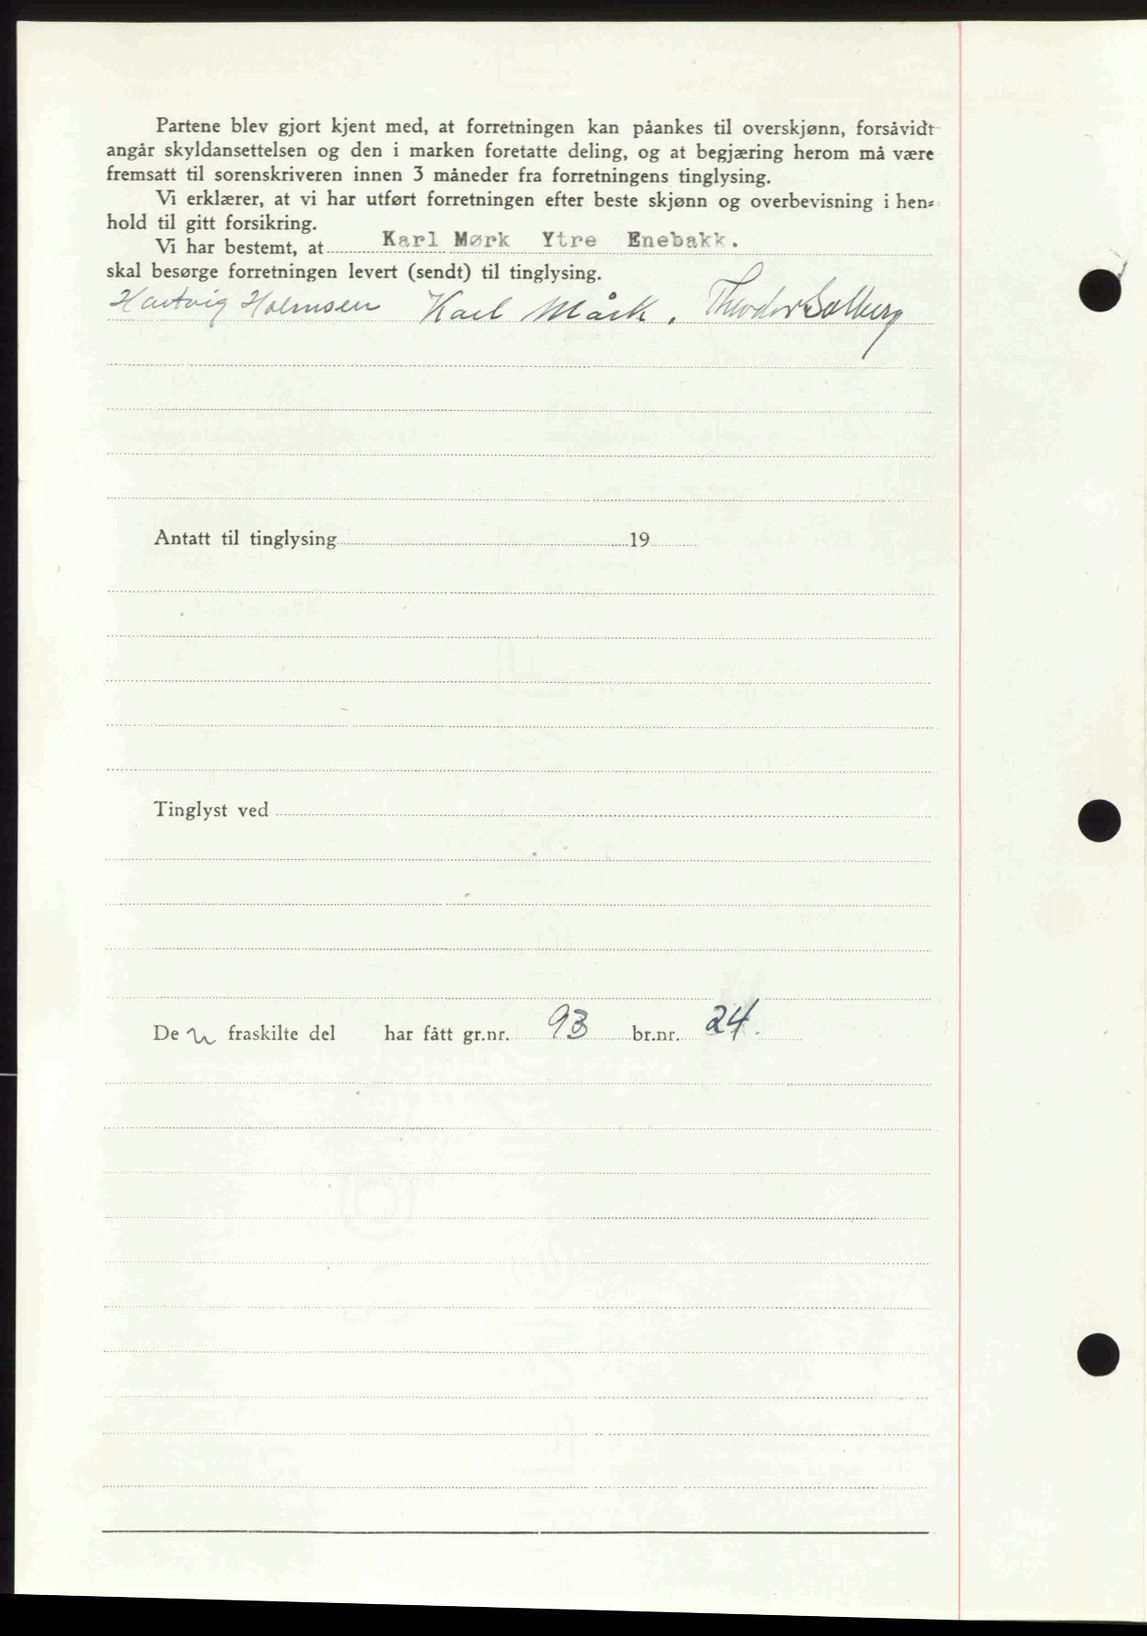 Partene blev gjort kjent med, at forretningen kan påankes til overskjønn, forsåvidt
angår skyldansettelsen og den i marken foretatte deling, og at begjæring herom må være
fremsatt til sorenskriveren innen 3 måneder fra forretningens tinglysing.
Vi erklærer, at vi har utført forretningen efter beste skjønn og overbevisning i hen-
hold til gitt forsikring.
Vi har bestemt, at Karl Mørk Ytre Enebakk.
skal besørge forretningen levert (sendt) til tinglysing.
Hartvig Holmsen Karl Mørk. Theodor Solberg
Antatt til tinglysing 19
Tinglyst ved
De n fraskilte del har fått gr.nr. 93 br.nr. 24.